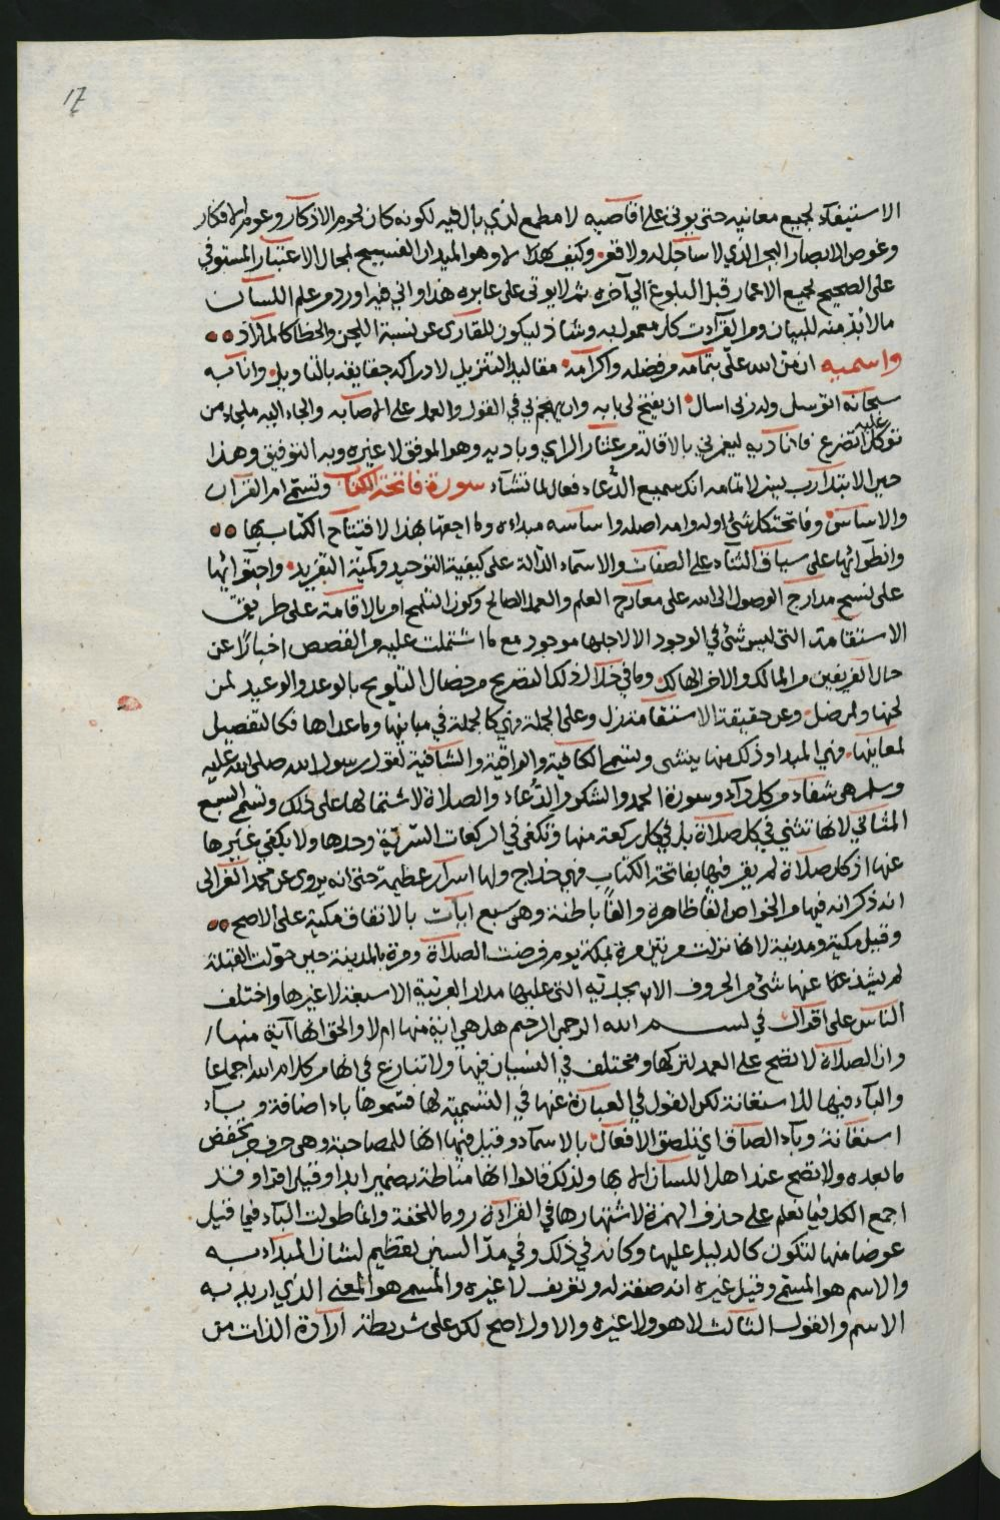 17
الاستيفآء لجميع معانيه حتى يوتى على اقاصيه لا مطمع لذي بال فيه لكونه كان لحوم الاذكار وعوم الافكار
وغوص الابصار البحر الذي لا ساحل له ولا قعر وكيف كهذا لا وهو الميدان الفسيح لمجال الاعتبار المستوفي
على الصحيح لجميع الاعمار قبل البلوغ الى آخره ثم لا يوتى على عابره هذا واني فيه اورد من علم اللسان
ما لا بد منه للبيان ومن القرآءت كل معمول به وشاذ ليكون للقارئ عن نسبة اللحن والخطا كالملاذ
واسميه ان من الله علي بتمامه من فضله واكرامه مقاليد التنزيل لادراك حقايقه بالتاويل وانا به
سبحانه اتوسل وله ربي اسال ان يفتح لي بابه وان يلهمني في القول والعمل على الاصابه والجاء اليه ملجاء من
توكل عليه اتضرع فاناديه ليغمرني بالاقالة من عثار الراي وباديه وهو الموفق لا غيره وبه التوفيق وهذا
حين الابتدا رب يسر لاتمامه انك سميع الدعاء فعال لما تشآء سورة فاتحة الكتاب وتسمى ام القرآن
والاساس وفاتحة كل شئ اوله وامه اصله واساسه مبداءه وما اجمعها بهذا لافتتاح الكتاب بها
وانطوآئها على سياق الثنآء على الصفات والاسمآء الدالة على كيفية التوحيد وكمية التفريد واحتوآئها
على نسيج مدارج الوصول الى الله على معارج العلم والعمل الصالح وكون التلميح امر بالاقامة على طريق
الاستقامة التى ليس شئ في الوجود الا لاجلها موجود مع ما اشتملت عليه من القصص اخبارًا عن
حال الفريقين من المالك والاخر الهالك وما في خلال ذلك التصريح من خصال التلويح بالوعد والوعيد لمن
لحنها ولمن ضل وعن حقيقة الاستقامة نزل وعلى الجملة فهي كالجملة في مبانيها وما عداها فكالتفصيل
لمعانيها فهي المبدا وذلك منها ينشى وتسمى الكافية والواقية والشافية لقول رسول الله صلى الله عليه
وسلم هى شفآء من كل دآء وسورة الحمد والشكر والدعاء والصلاة لاشتمالها على ذلك وتسمى السبع
المثاني لانها تثنى في كل صلاة بل في كل ركعة منها وتكفى في الركعات السرية وحدها ولا يكفي غيرها
عنها اذ كل صلاة لم يقر فيها بفاتحة الكتاب فهي خداج ولها اسرار عظيمة حتى انه يروى عن محمد الغزالى
انه ذكر انه فيها من الخواص الفًا ظاهرة والفًا باطنة وهى سبع ايآت بالاتفاق مكية على الاصح
وقيل مكية ومدنية لانها نزلت مرتين مرة بمكة يوم فرضت الصلاة ومرة بالمدينة حين حولت القبلة
لم يشذ عنها شئ من الحروف الابجدية التى عليها مدار العربية الا سبعة لا غيرها واختلف
الناس على اقوال في بسم الله الرحمن الرحيم هل هى اية منها ام لا والحق انها آية منها
وان الصلاة لا تصح على العمد لتركها ومختلف في النسيان فيها ولا تنازع في انها من كلام الله اجماعا
والبآء فيها للاستعانة لكن القول في العبارة عنها في التسمية لها فسموها باء اضافة وبآء
استعانة وبآء الصاق اي تلصق الافعال بالاسمآء وقيل فيها انها للمصاحبة وهى حرف جر تخفض
ما بعده ولا تصح عند اهل اللسان الا بها ولذلك قالوا انها مناطة بضمير ابدا وقيل اقرا وقد
اجمع الكل فيما نعلم على حذف الهمزة لاشتهارها في القرآءة روما للخفة وانما طولت البآء فيما قيل
عوضا منها لتكون كالدليل عليها وكانه في ذلك وفي مد السين تعظيم لشان المبدا به
والاسم هو المسمى وقيل غيره انه صفة له وتعريف لا غيره والمسمى هو المعنى الذي اريد به
الاسم والقول الثالث لا هو ولا غيره والاول اصح لكن على شريطة ارادة الذات من